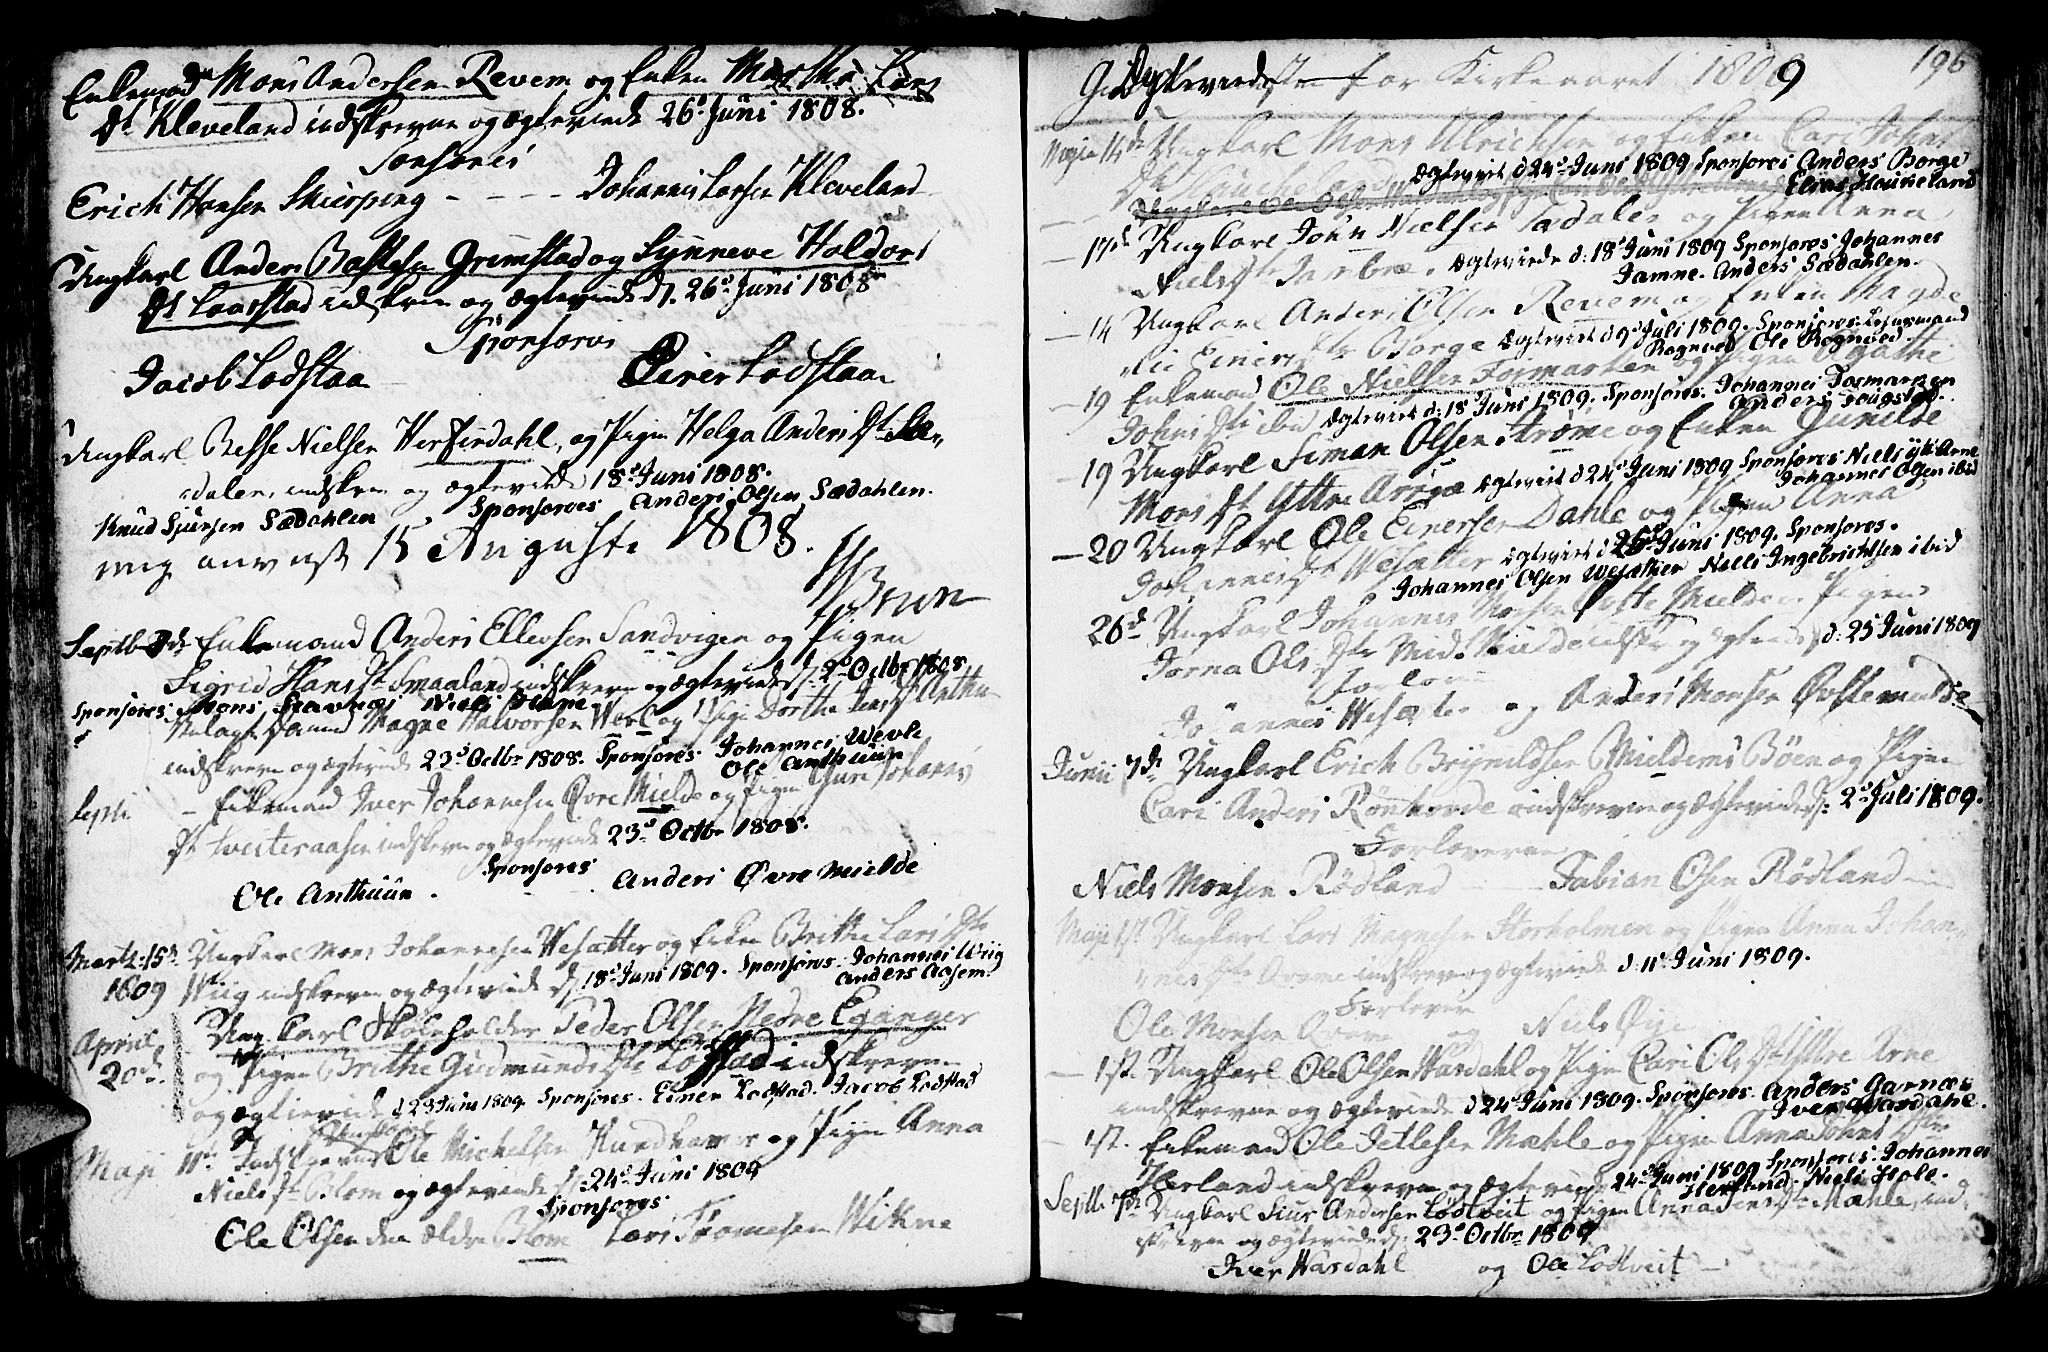 Enkemand Mons Andersen Revem og Enken Martha Lars
Dt Kleveland indskrevne og ægteviede 26d Juni 1808.
Sponsores
Erich Hansen Skierping - - - - Johannes Larsen Kleveland
Ungkarl Anders Baltesen Grimstad og Synneve Haldors
Dt Laastad indskrevne og ægteviede d. 26d Juni 1808
Sponsores
Jacob Lodstaa Einer Lodstaa
Ungkarl Besse Nielsen Herfindahl, og Pigen Helga Anders Dt Sæ-
dalen, indskrevne og ægteviede 18d Juni 1808.
Knud Sjursen Sædahlen Sponsores Anders Olsen Sædahlen.
mig anvist 15 Augusti 1808.
Brun
Septb Enkemand Anders Ellevsen Sandvigen og Pigen
Sigrid Hans Dt Smaaland indskrevne og ægteviede d. 2d Octbr 1808.
Sponsores Mons Niels
Magne Halvorsen og Pige Dorthe Jens Dt Anthun
indskrevne og ægteviede 23d Octbr 1808. Sponsores Johannes Wevle
Ole Anthuun
Septb - Enkemand Iver Johannesen Øvre Mielde og Pigen Guri Johannes
Dt Tvesteraasen indskrevne og ægteviede 23d Octbr 1808.
Sponsores
Ole Anthuun. Anders Øvre Mielde
Martz 15d Ungkarl Mons Johannesen Wesætter og Enken Brithe Lars Dtr
1809 Wiig indskrevne og ægteviede d. 18d Juni 1809. Sponsores Johannes Wiig
Anders Aasem.
April Ung Karl Skoleholder Peder Olsen Nedre Eganger
20d og Pigen Brithe Gudmunds Dtr Lodstad indskrevne
og ægteviede d 23 Juni 1809. Sponsores. Einer Lodstad. Jacob Lodstad
Ungkarl
Maji 11te Indskrevne Ole Michelsen og Pigen Anna
Niels Dt Blom og ægteviede d. 24d Juni 1809
Sponsores
Ole Olsen den ældre Blom Lars Tromesen Wikne
Ægteviede for Kirkeaaret 1809 196
Maji 14d Ungkarl Mons Ulrichsen og Enken Cari Johns
Dt Houkeland Ægteviet d 24d Juni 1809 Sponsores Anders Borge
Elias Haukeland
- 17d Ungkarl John Nielsen Sædalen og Pigen Anna
Niels Dt . Ægteviede d: 18d Juni 1809 Sponsores Johannes
Anders Sædahlen.
- 14 Ungkarl Anders Olsen Revem og Enken Magde
lie Einers Dtr Borge Ægteviet d 9d Juli 1809. Sponsores Lensmand
Rognved Ole Rognved.
- 19 Enkemand Ole Nielsen Tosmarken og Pigen Agathe
Johns Dtr ibid Ægteviet d: 18d Juni 1809. Sponsores. Johannes Tosmarken
Anders
- 19 Ungkarl Siman Olsen Strøme og Enken Gunilde
Mons Dt Yttre Arne Ægteviet d 24d Juni 1809 Sponsores Niels Ytt Arne
Johannes Olsen ibid
- 20 Ungkarl Ole Einersen Dahle og Pigen Anna
Johannes Dt Wesætter Ægteviet d 26d Juni 1809. Sponsores.
Johannes Olsen Wesæther Niels Ingebrichtsen ibid
26d Ungkarl Johannes Monsen Øvste Mielde og Pigen
Jorna Ols Dtr Mid Mielde indskr og Ægteviede d: 25 Juni 1809
Forlovere
Johannes Wesæter og Anders Monsen Øvste Mielde
Junii 7de Ungkarl Erich Brynildsen Mieldems Bøen og Pigen
Cari Anders Rønhovde indskrevne og ægteviede d: 2d Juli 1809.
Forloverne
Niels Monsen Rødland - - Fabian Olsen Rødland -
Maji 1st. Ungkarl Lars Magnesen Storholmen og Pigen Anna Johan-
nes Dtr indskrevne og ægteviede d: 11d Juni 1809.
Forlovere
Ole Monsen og Niels Øye
- 1st. Ungkarl Ole Olsen Wardahl og Pigen Cari Ols Dt Yttre Arne
indskrevne og ægteviede d 24d Juni 1809. Sponsores Anders Garnæs
Iver Wardahl.
- 1st. Enkemand Ole Detlefsen Mæhle og Pigen Anna Johns Dtr
Herland indskrevne og ægteviede 24d Juni 1809 Sponsores. Johannes
Herland. Niels Hole.
Septb. 7de Ungkarl Siur Andersen Lodtveit og Pigen Anna Jens Dtr Mæhle, ind-
skrevne og ægteviede d: 23d Octbr 1809
Iver Wardahl og Ole Lodtveit -